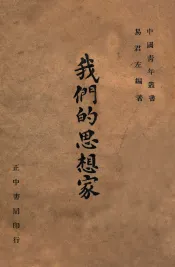 中國青年叢書
易君左編著
我們的思想家
正中書局印行